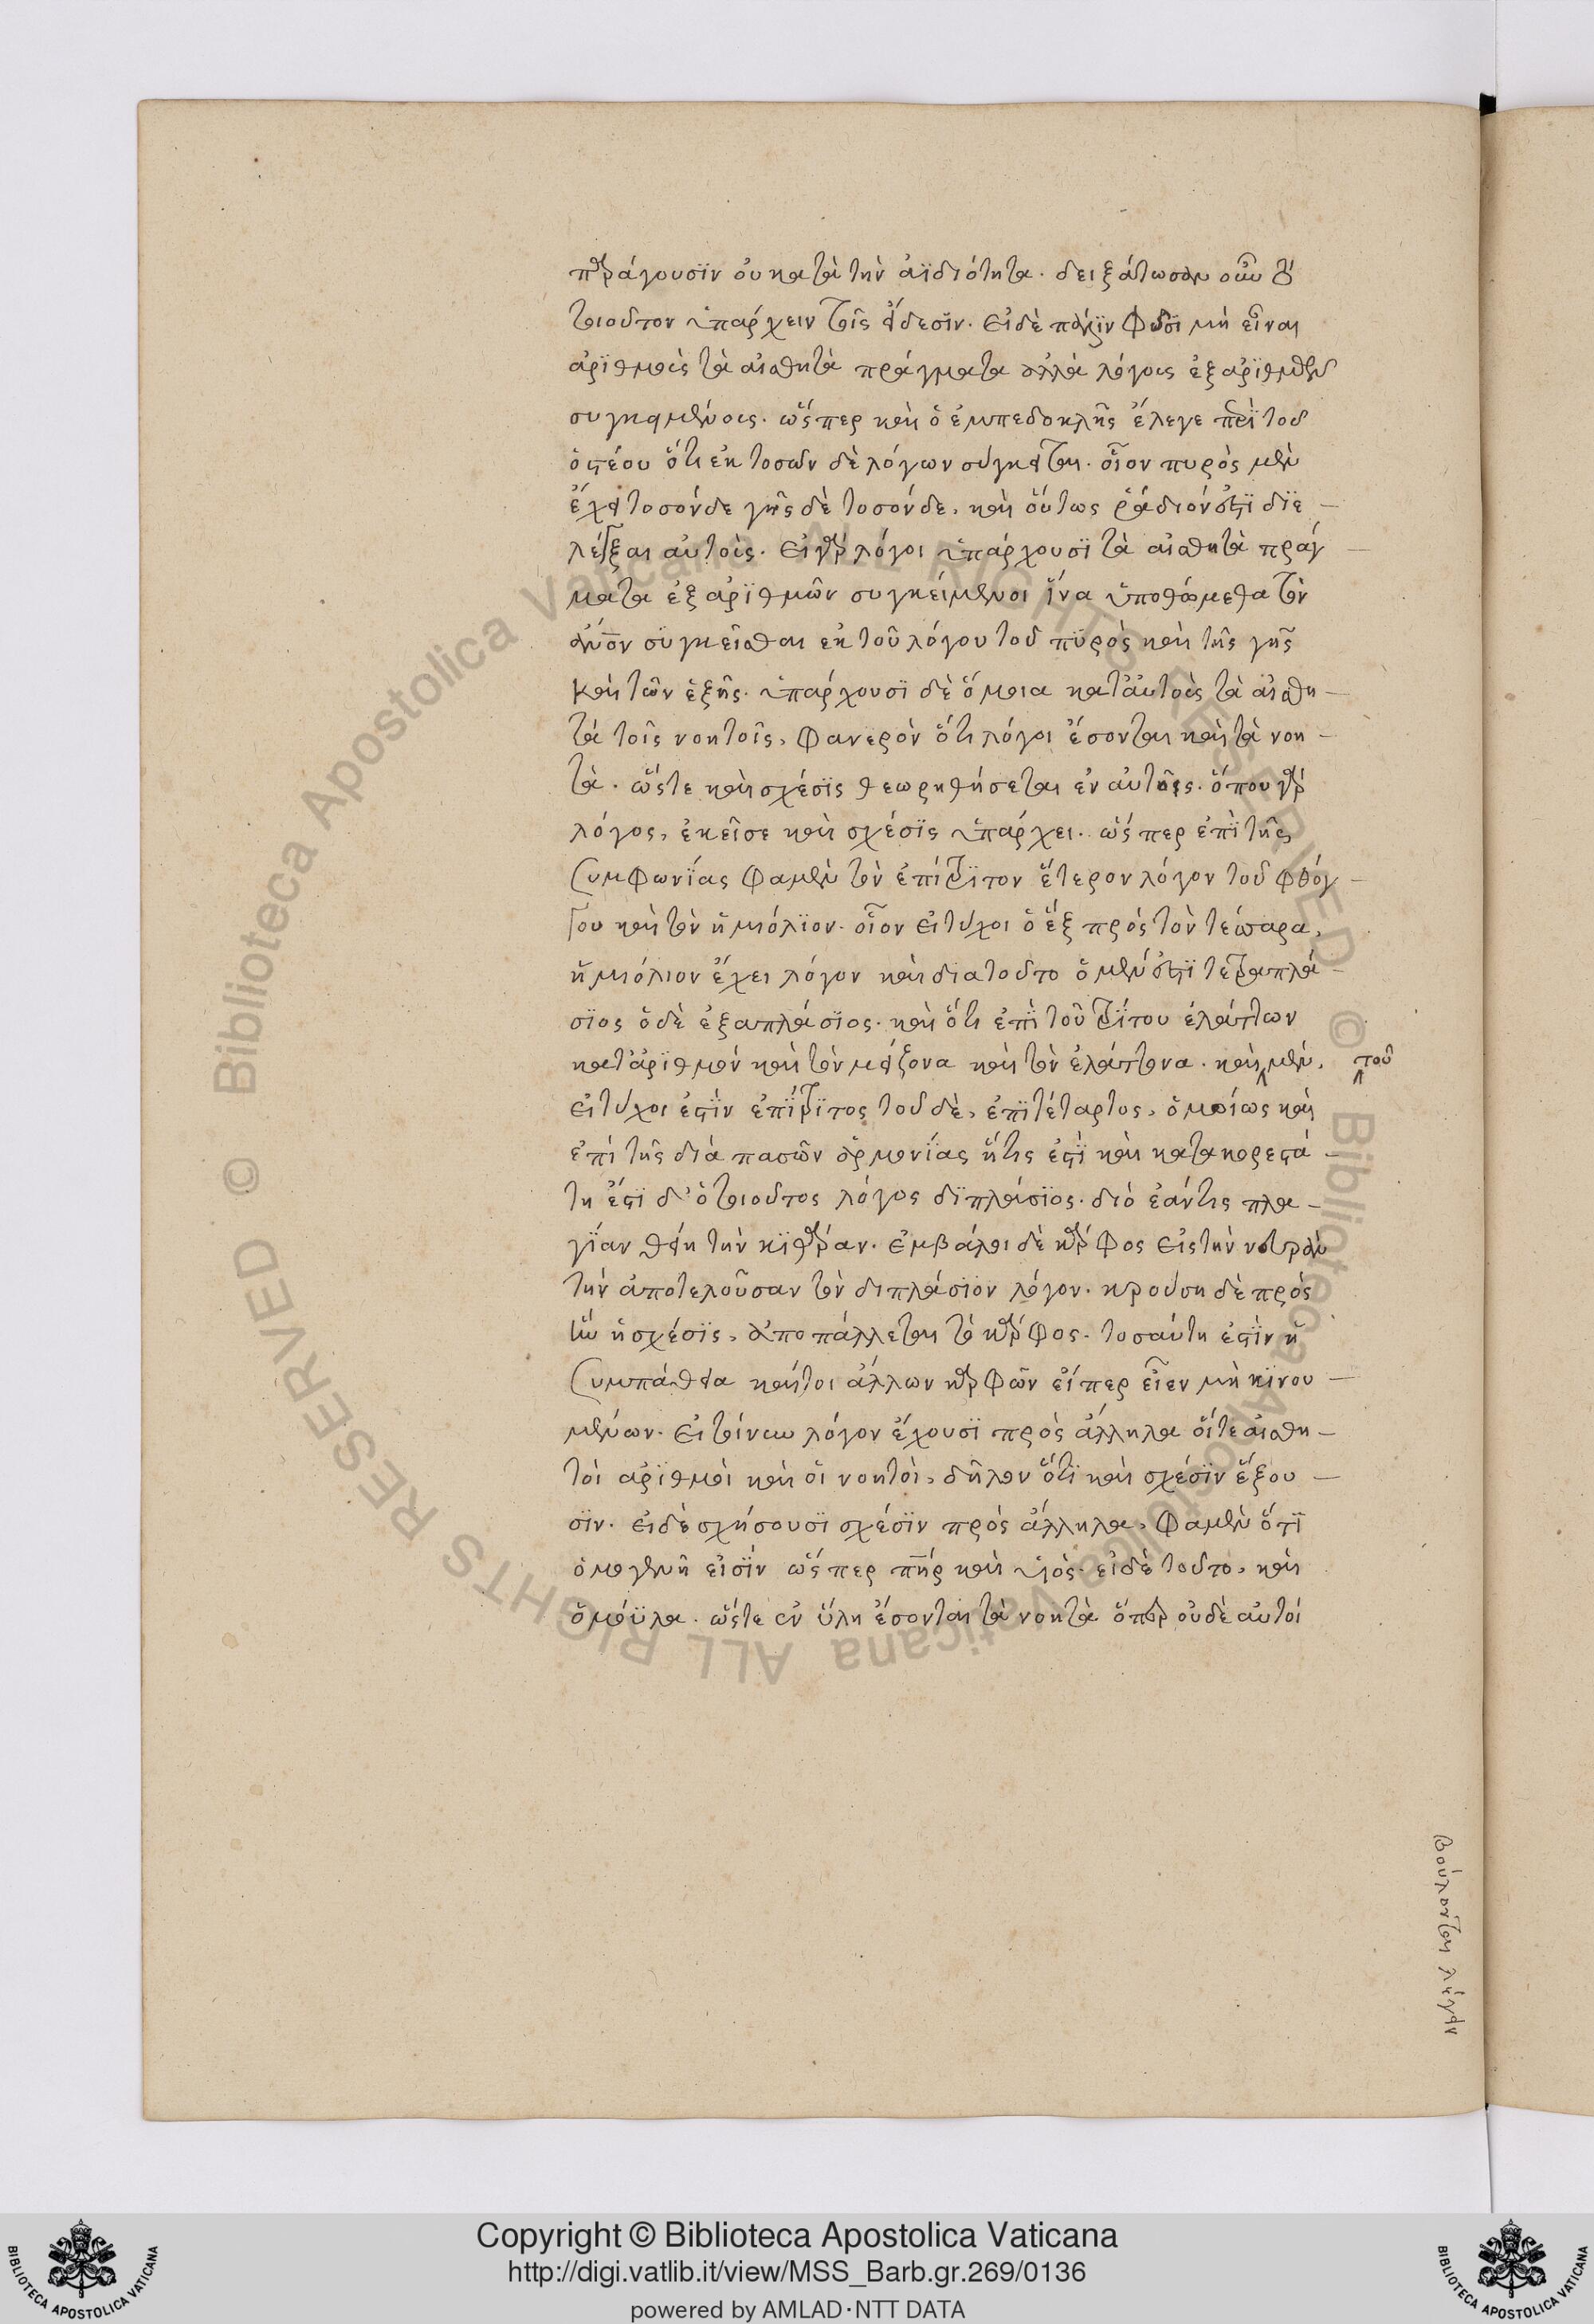 παράγουσϊν οὐ κατὰ τὴν ἀϊδιότητα. δειξάτωσαν οὖν τὸ
τοιοῦτον ὑπάρχειν τοῖς εἴδεσϊν. εἰ δὲ πάλϊν φασὶ μὴ εἶναι
ἀρϊθμοὺς τὰ αἰσθητὰ πράγματα ἀλλὰ λόγους ἐξ ἀρϊθμῶν
συγκειμένους. ὥσπερ καὶ ὁ ἐμπεδοκλῆς ἔλεγε περὶ τοῦ
ὀστέου ὅτι ἐκ τοσῶν δὲ λόγων σύγκειται. οἷον πυρὸς μὲν
ἔχει τοσόνδε γῆς δὲ τοσόνδε, καὶ οὕτως ῥάδιόν ἐστϊ διε-
λέγξαι αὐτούς. εἰ γὰρ λόγοι ὑπάρχουσϊ τὰ αἰσθητὰ πράγ-
ματα ἐξ ἀρϊθμῶν συγκείμενοι ἵνα ὑποθώμεθα τὸν
ἄνον συγκεῖσθαι ἐκ τοῦ λόγου τοῦ πυρὸς καὶ τῆς γῆς
καὶ τῶν ἑξῆς. ὑπάρχουσϊ δὲ ὅμοια κατ' αὐτοὺς τὰ αἰσθη-
τὰ τοῖς νοητοῖς, φανερὸν ὅτι λόγοι ἔσονται καὶ τὰ νοη-
τὰ. ὥστε καὶ σχέσϊς θεωρηθήσεται ἐν αὐτοῖς. ὅπου γὰρ
λόγος, ἐκεῖσε καὶ σχέσϊς ὑπάρχει. ὥσπερ ἐπὶ τῆς
συμφωνίας φαμὲν τὸν ἐπίτρϊτον ἕτερον λόγον τοῦ φθόγ-
γου καὶ τὸν ἡμιόλϊον. οἷον εἰ τύχοι ὁ ἓξ πρὸς τὸν τέσσαρα,
ἡμιόλιον ἔχει λόγον καὶ διατοῦτο ὁ μὲν ἐστϊ τετραπλά-
σϊος ὁ δὲ ἑξαπλάσϊος. καὶ ὅτι ἐπὶ τοῦ τρίτου ἐλάττων
κατ' ἀρϊθμὸν καὶ τὸν μείζονα καὶ τὸν ἐλάττονα. καὶ τοῦ μὲν,
εἰ τύχοι ἐστὶν ἐπίτρϊτος τοῦ δὲ, ἐπϊτέταρτος, ὁμοίως καὶ
ἐπὶ τῆς διὰ πασῶν ἁρμονίας ἥτις ἐστὶ καὶ κατακορεστά-
τη ἔστι δ' ὁ τοιοῦτος λόγος διπλάσϊος. διὸ ἐάν τις πλα-
γίαν θείη τὴν κιθάραν. ἐμβάλοι δὲ κάρφος εἰς τὴν νευρὰν
τὴν ἀποτελοῦσαν τὸν διπλάσϊον λόγον. κρούση δὲ πρὸς
ἣν ἡ σχέσϊς, ἀποπάλλεται τὸ κάρφος. τοσαύτη ἐστὶν ἡ
συμπάθεια καίτοι ἄλλων καρφῶν εἴπερ εἶεν μὴ κϊνου-
μένων. εἰ τοίνυν λόγον ἔχουσϊ πρὸς ἄλληλα οἵτε αἰσθη-
τοὶ ἀρϊθμοὶ καὶ οἱ νοητοὶ, δῆλον ὅτϊ καὶ σχέσϊν ἕξου-
σϊν. εἰ δὲ σχήσουσϊ σχέσϊν πρὸς ἄλληλα, φαμὲν ὅτϊ
ὁμογενῆ εἰσὶν ὥσπερ πηρ καὶ υἱός. εἰ δὲ τοῦτο, καὶ
ὁμόϋλα. ὥστε ἐν ὕλη ἔσονται τὰ νοητὰ ὅπερ οὐδὲ αὐτοί
βούλονται λέγειν
Copyright © Biblioteca Apostolica Vaticana
http://digi.vatlib.it/view/MSS_Barb.gr.269/0136
powered by AMLAD·NTT DATA
BIBLIOTECA APOSTOLICA VATICANA
BIBLIOTECA APOSTOLICA VATICANA
© Biblioteca Apostolica Vaticana ALL RIGHTS RESERVED © Biblioteca Apostolica Vaticana ALL RIGHTS RESERVED